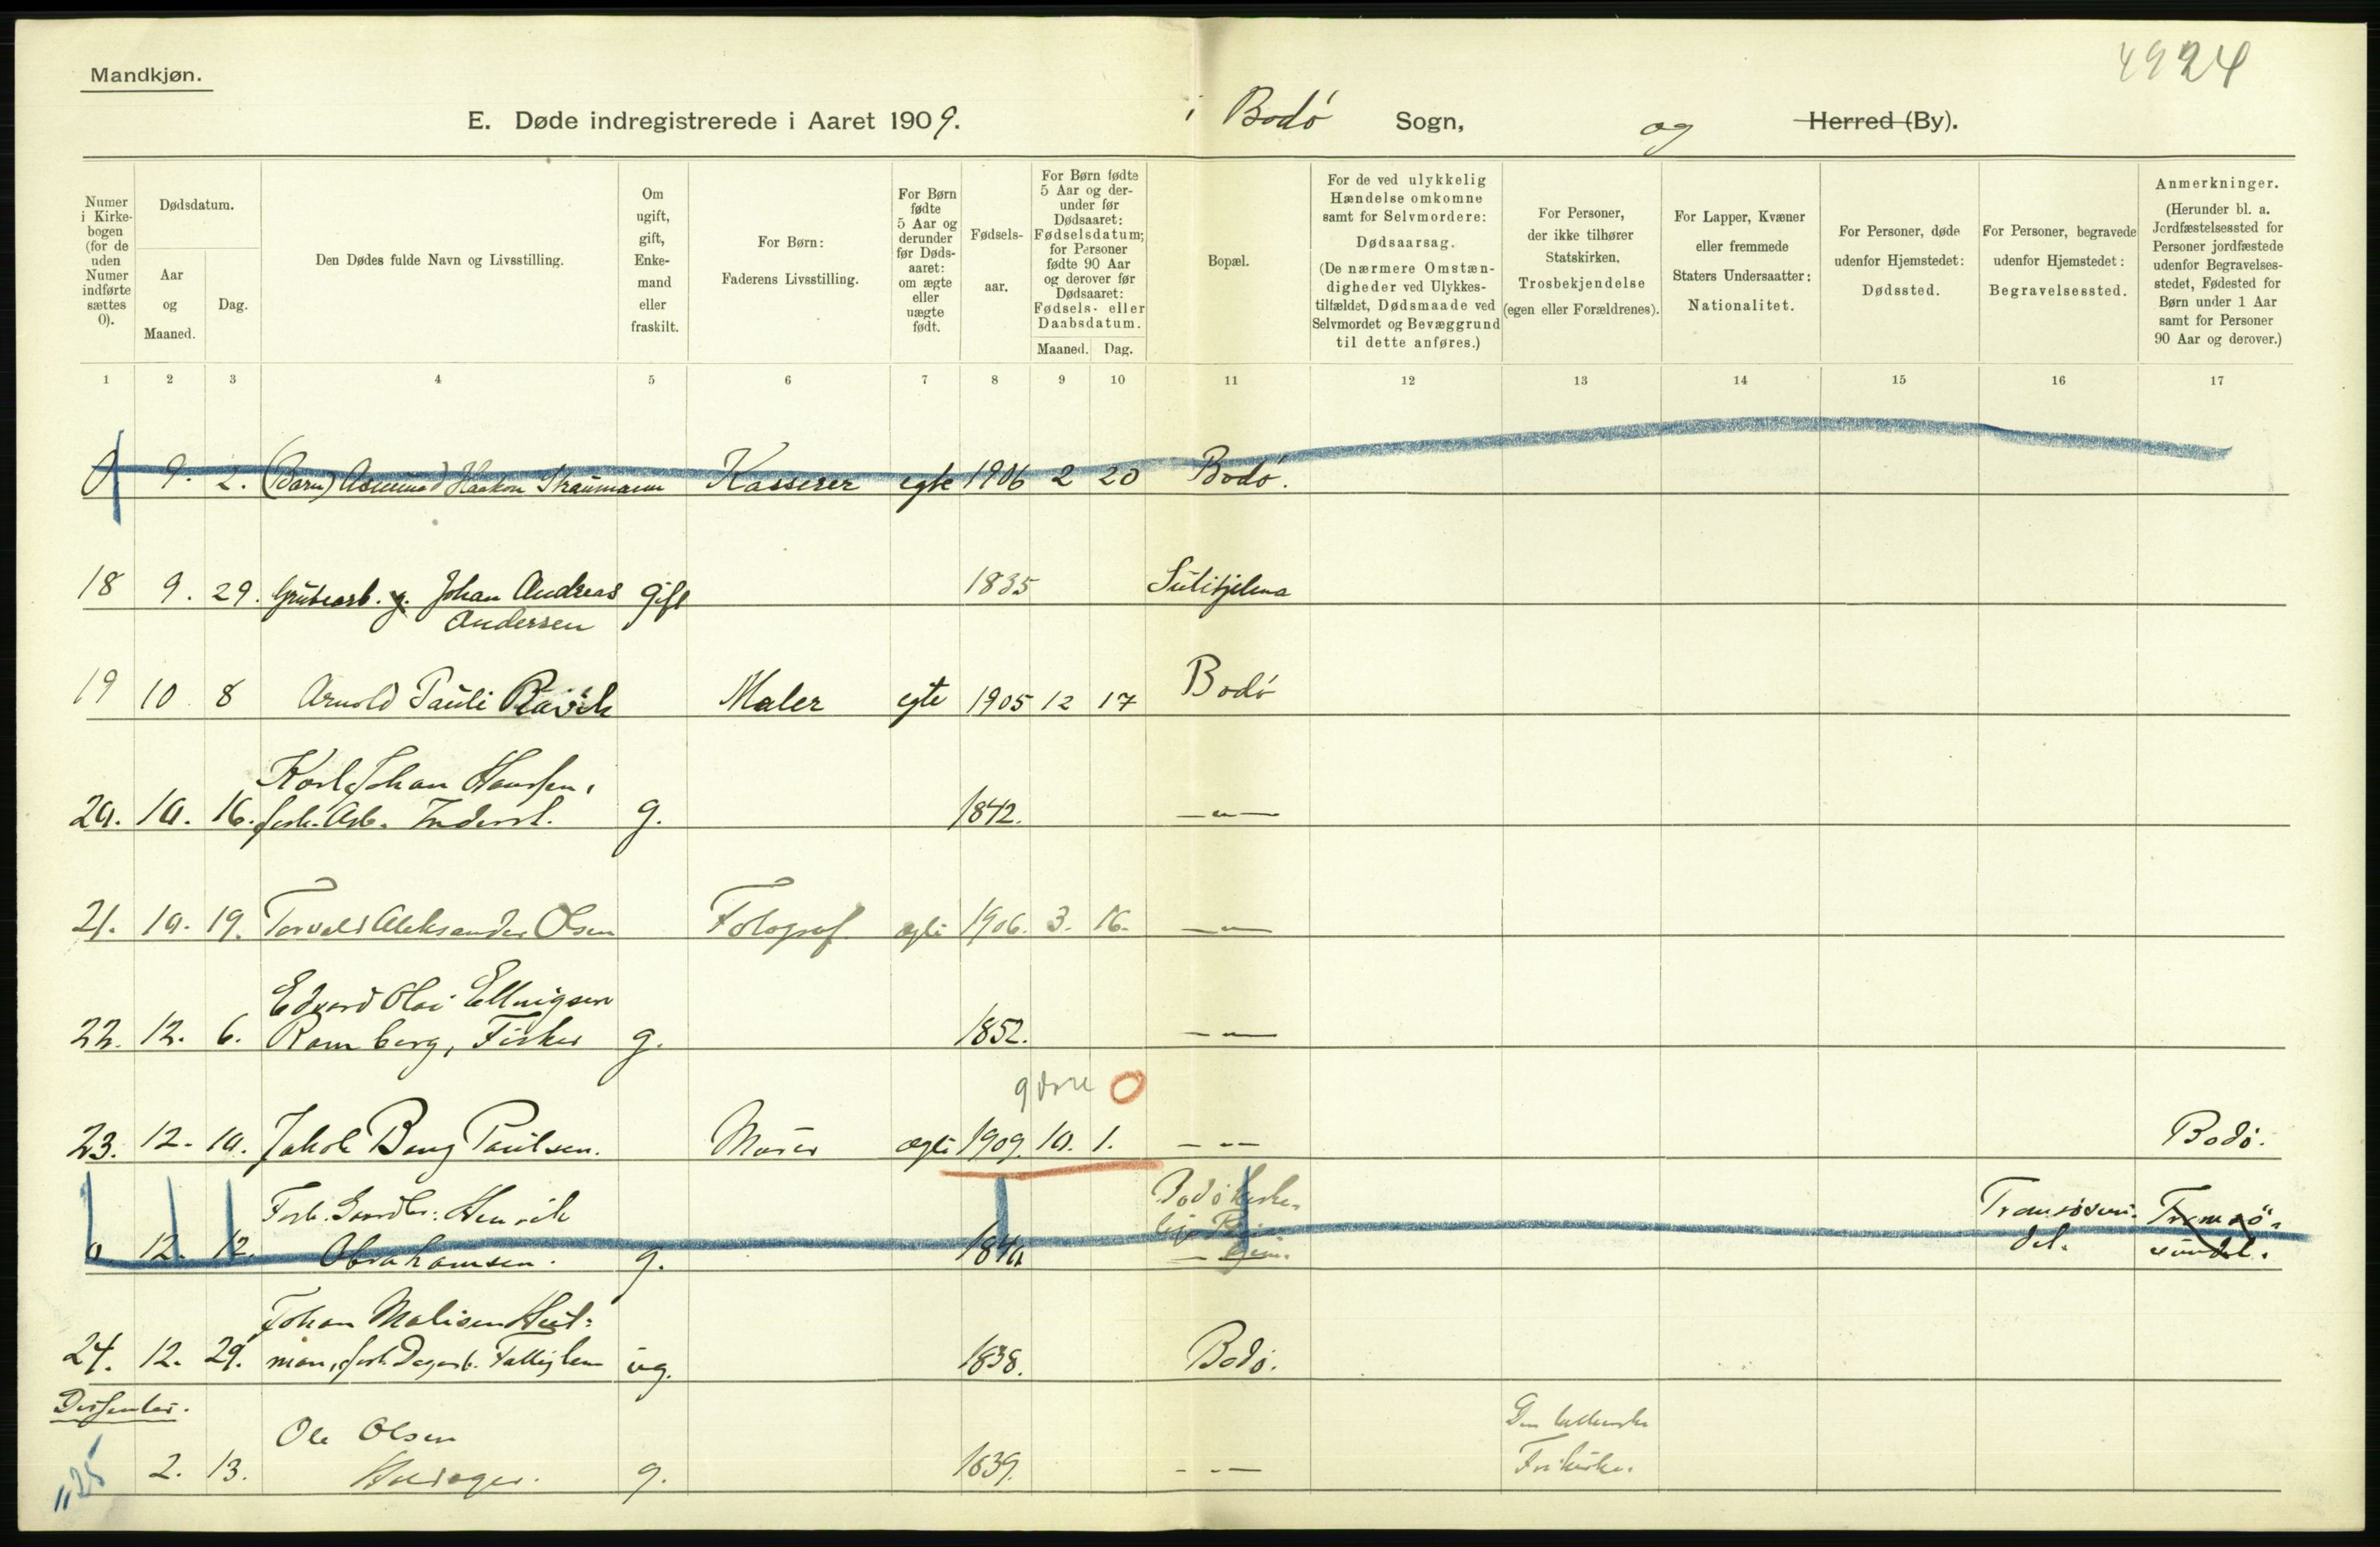 4924
Mandkjøn.
E. Døde indregistrerede i Aaret 1909. i Bodö Sogn, og Herred (By).
Numer i Kirke-bogen (for de uden Numer indførte sættes 0).
Dødsdatum.
Aar og Maaned.
Dag.
Den Dødes fulde Navn og Livsstilling.
Om ugift, gift, Enke-mand eller fraskilt.
For Børn: Faderens Livsstilling.
For Børn fødte 5 Aar og derunder før Døds-aaret: om ægte eller uægte født.
Fødsels-aar.
For Børn fødte 5 Aar og der-under før Dødsaaret: Fødselsdatum; for Personer fødte 90 Aar og derover før Dødsaaret: Fødsels- eller Daabsdatum.
Maaned. Dag.
Bopæl.
For de ved ulykkelig Hændelse omkomne samt for Selvmordere: Dødsaarsag. (De nærmere Omstæn-digheder ved Ulykkes-tilfældet, Dødsmaade ved Selvmordet og Bevæggrund til dette anføres.)
For Personer, der ikke tilhører Statskirken, Trosbekjendelse (egen eller Forældrenes).
For Lapper, Kvæner eller fremmede Staters Undersaatter: Nationalitet.
For Personer, døde udenfor Hjemstedet: Dødssted.
For Personer, begravede udenfor Hjemstedet: Begravelsessted.
Anmerkninger. (Herunder bl. a. Jordfæstelsessted for Personer jordfæstede udenfor Begravelses-stedet, Fødested for Børn under 1 Aar samt for Personer 90 Aar og derover.)
1 2 3 4 5 6 7 8 9 10 11 12 13 14 15 16 17
0 9. 2. (Barn) Asmund Haakon Straumann Kasserer egte 1906 2 20 Bodö.
18 9. 29. Grubearb. Johan Andreas gift 1835 Sulitjelma
Andersen
19 10 8 Arnold Pauli Maler egte 1905 12 17 Bodö
Karl Johan Hansen,
20. 10. 16. g. 1842. — " —
21. 10. 19. Torvald Aleksander Olsen Fotograf ægte 1906. 3. 16. — " —
Edvard Olai Ellingsen
22. 12. 6. Ramberg, Fisker g. 1852. — " —
0
23. 12. 10. Jakob Bang Paulsen. Murer ægte 1909. 10. 1. — " — Bodö.
Forh. Gaardbr. Henrik
0 12. 12. Abrahamsen. g. 1840
Tromsösun-del.
Tromsö-sundet.
Johan
24. 12. 29. man, forh. Dagarb. Fattiglem ug. 1838. Bodö.
Dissenter.
Ole Olsen
25 2. 13. g. 1839. — " —
Den lutherske
Frikirke.